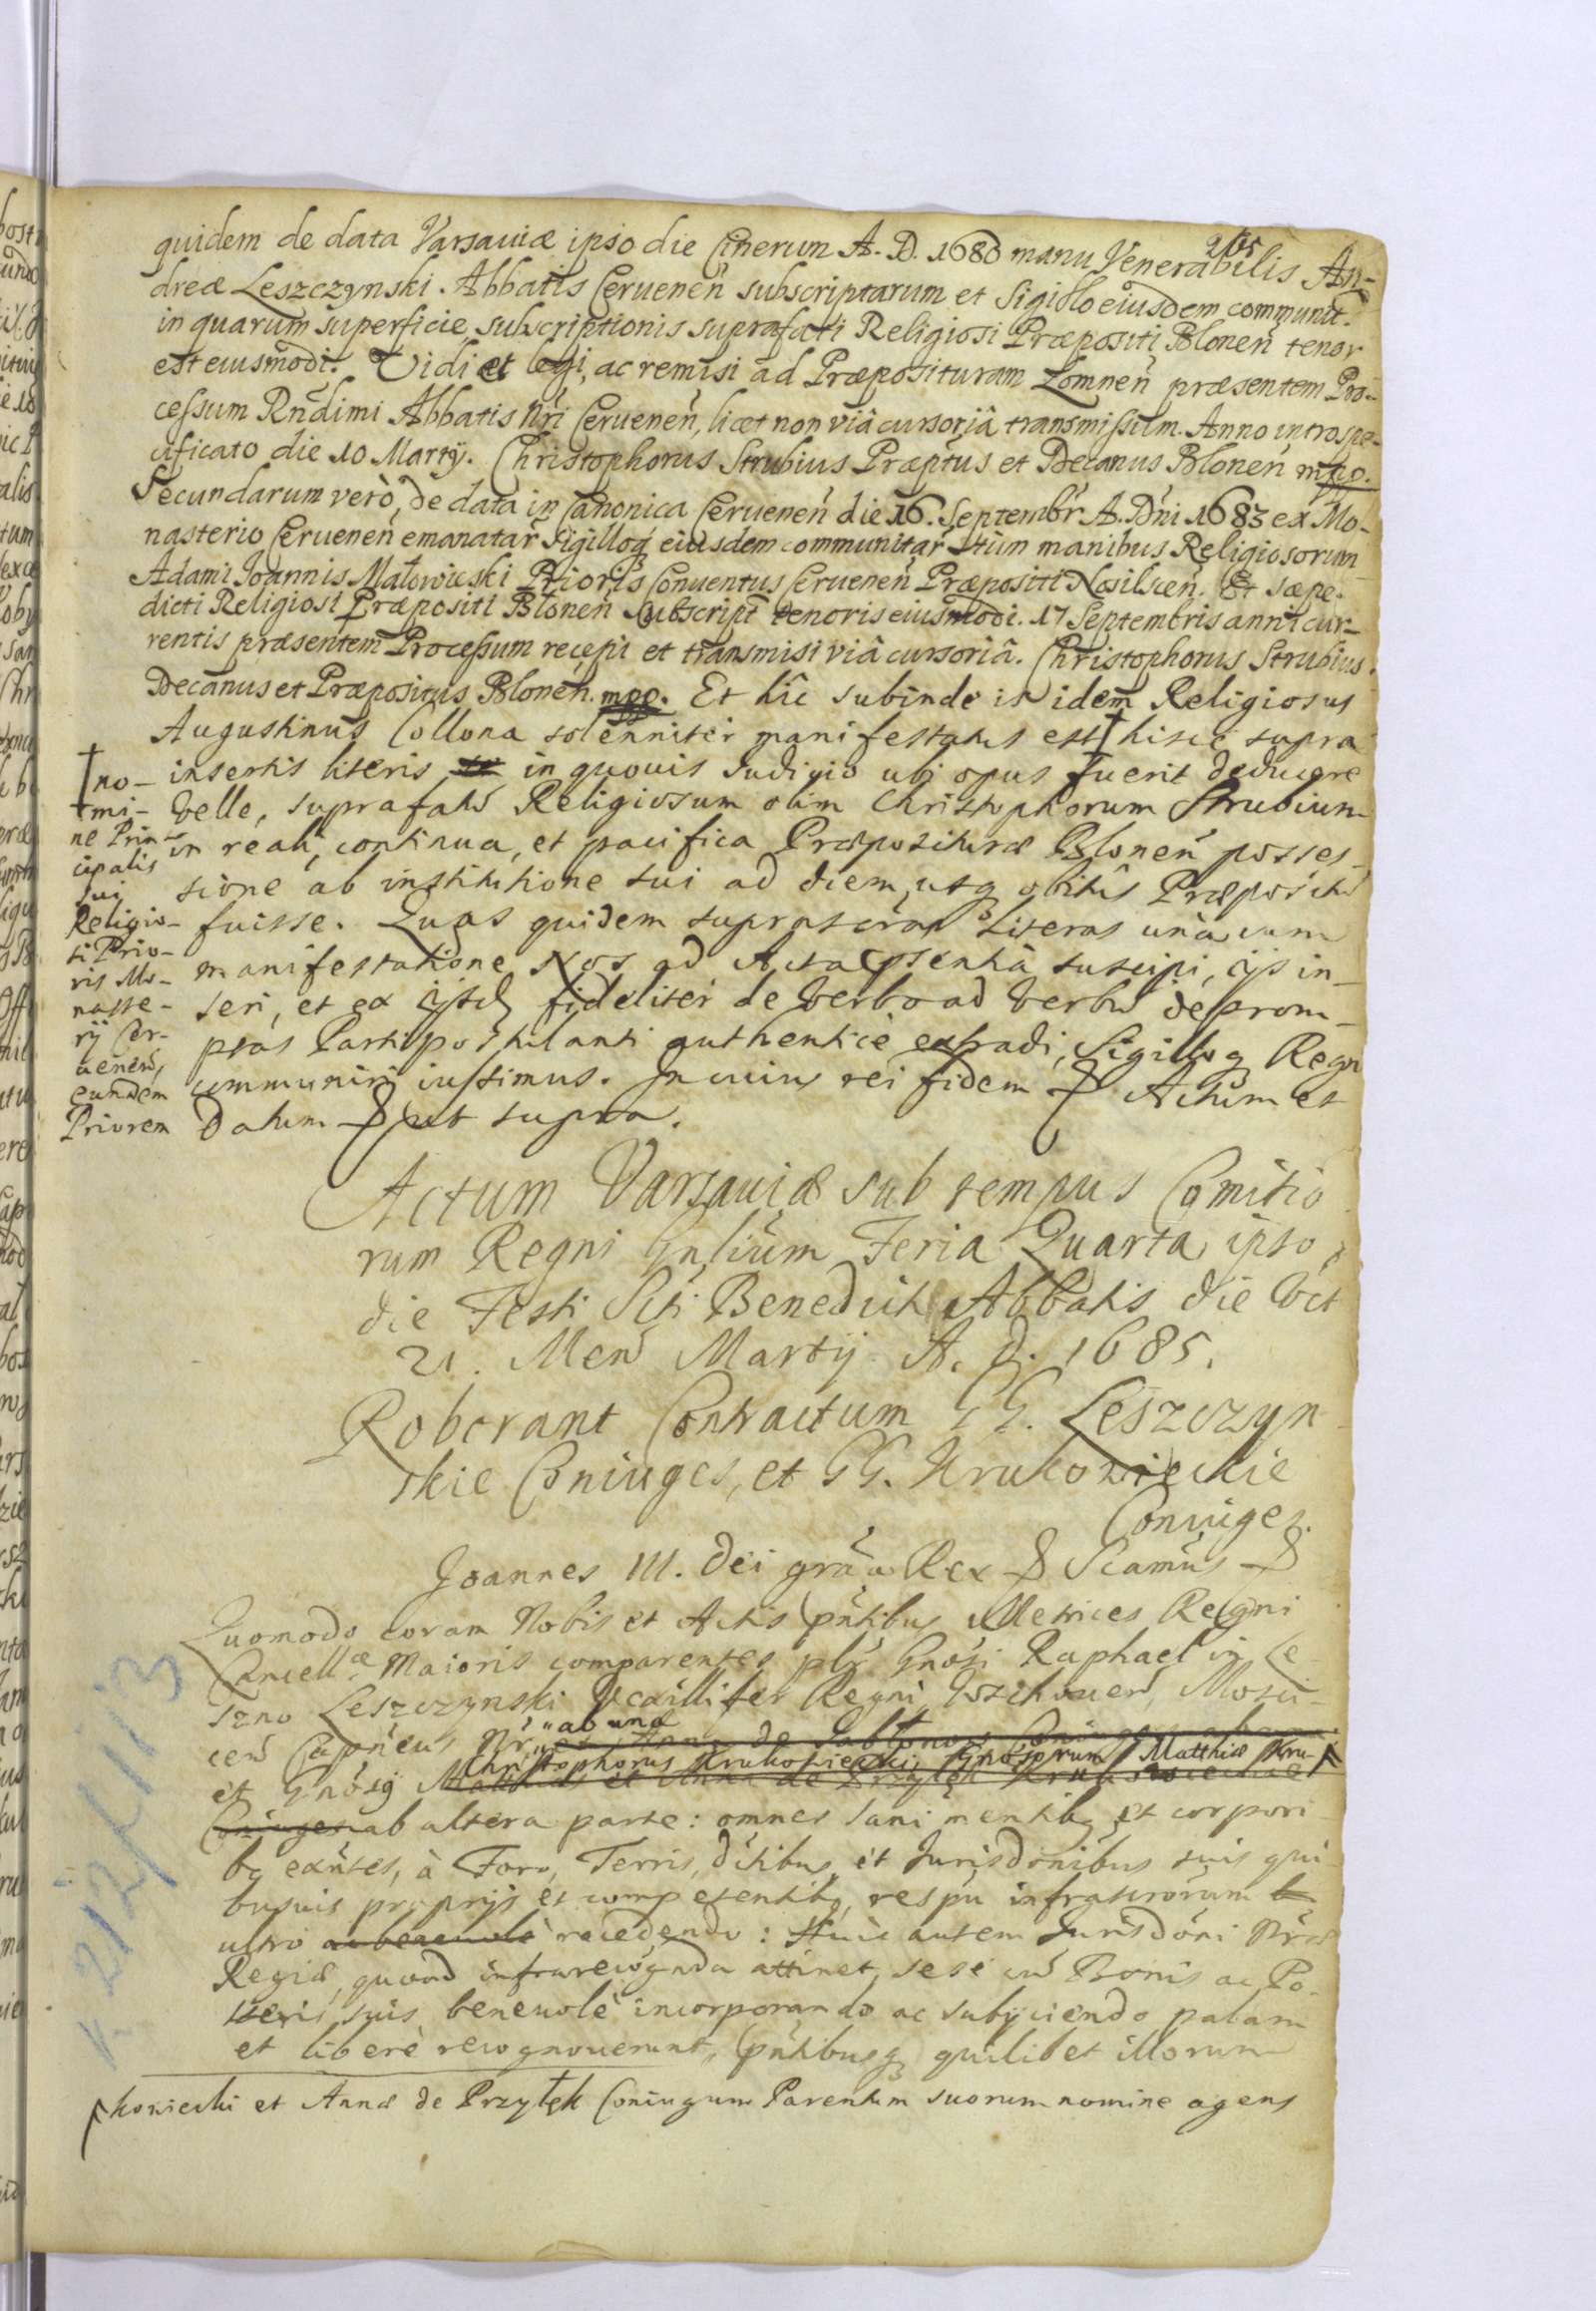 265
quidem de data Varsauiæ ipso die Cinerum A. D. 1680 manu Venerabilis An-
dreæ Leszczynski. Abbatis Ceruenen̄ subscriptarum et Sigillo eiusdem communit.
in quarum superficie subscriptionis suprafati Religiosi Præpositi Blonen̄ tenor
est eiusmodi. Vidi et legi, ac remisi ad Præposituram Lomnen̄ præsentem Pro-
cessum Rn̄dimi Abbatis nr̄i Ceruenen̄, licet non viâ cursoriâ transmissum. Anno introspe-
cificato die 10 Martij. Christophorus Strubius Præptus et Decanus Blonen̄ mpp.
Secundarum verò, de data in Canonica Ceruenen̄ die 16. Septembr̄ A. Dn̄i 1683 ex Mo-
nasterio Ceruenen̄ emanatar̄ Sigilloq̨ eiusdem communitar̄ tùm manibus Religiosorum
Adami Joannis Małowieski Prioris Conuentus Ceruenen̄ Præpositi Nosilscen̄. Et sæpe-
dicti Religiosi Præpositi Blonen̄ Subscript̄ tenoris eiusmodi. 17 Septembris anni cur-
rentis præsentem Processum recepi et transmisi viâ cursoriâ. Christophorus Strubius
Decanus et Præpositus Blonen̄. mpp. Et hîc subinde is idem Religiosus
Augustinus Collona solenniter manifestatus est † hisce supra
insertis literis in quouis Judicio ubi opus fuerit deducere
velle, suprafatū Religiosum olim Christophorum Strubium
in reali, continua, et pacifica Præpositura Blonen̄ posses-
sione ab institutione sui ad diem usq̨ obitûs Præpositū
fuisse. Quas quidem suprascr̄as Literas unà cum
manifestatione Nos ad Acta p̄sentia suscipi, ijs in-
seri, et ex ijsd̄ fideliter de verbo ad verbū deprom-
ptas Parti postulanti authenticè extradi, Sigilloq̨ Regni
communiri iussimus. In cuius rei fidem & Actum et
Datum & ut supra.
† no-
mi-
ne Prin-
cipalis
sui
Religio-
si Prio-
ris Mo-
naste-
rij Cer-
uenen̄,
eundem
Priorem
Actum Varsauiæ sub tempus Comitio
rum Regni Gn̄lium Feria Quarta ipso
die Festi Sc̄ti Benedicti Abbatis die vct
21. Men̄ Martij A. D. 1685.
Roborant Contractum GG. Leszczyn-
skie Coniuges, et GG. Krukowieckie
Coniuges.
Joannes III. Dei gr̄a Rex & Sc̄amus &
Quomodo coram Nobis et Actis p̄ntibus Metrices Regni
Cancellæ Maioris comparentes pl̄r Gnosi Raphael in Le-
szno Leszczynski Vexillifer Regni, Wschouen̄, Mosci-
cen̄ Capneus Nr̄ ab una de Jabłonow
et Gnosg Christophorus Krukowiecki, Gnosorum Matthiæ Kru-
Coniuges ab altera parte: omnes sani mentibq̨ et corpori
bq̨ exn̄tes, à Foro, Terris, d̄ctibus et Jurisd̄onibus suis qui-
busuis proprijs et competentibq̨, respu infrascrorum
ultro ac beneuolè recedendo: Huic autem Jurisd̄oni Nr̄æ
Regiæ, quoad infrarecognda attinet, sese cū Bonis ac Po-
steris suis beneuolè incorporando ac subijciendo palam
et liberè recognouerunt, p̄ntibusq̨ quilibet illorum
kowiecki et Annæ de Przyłęk Coniugum Parentum suorum nomine agens